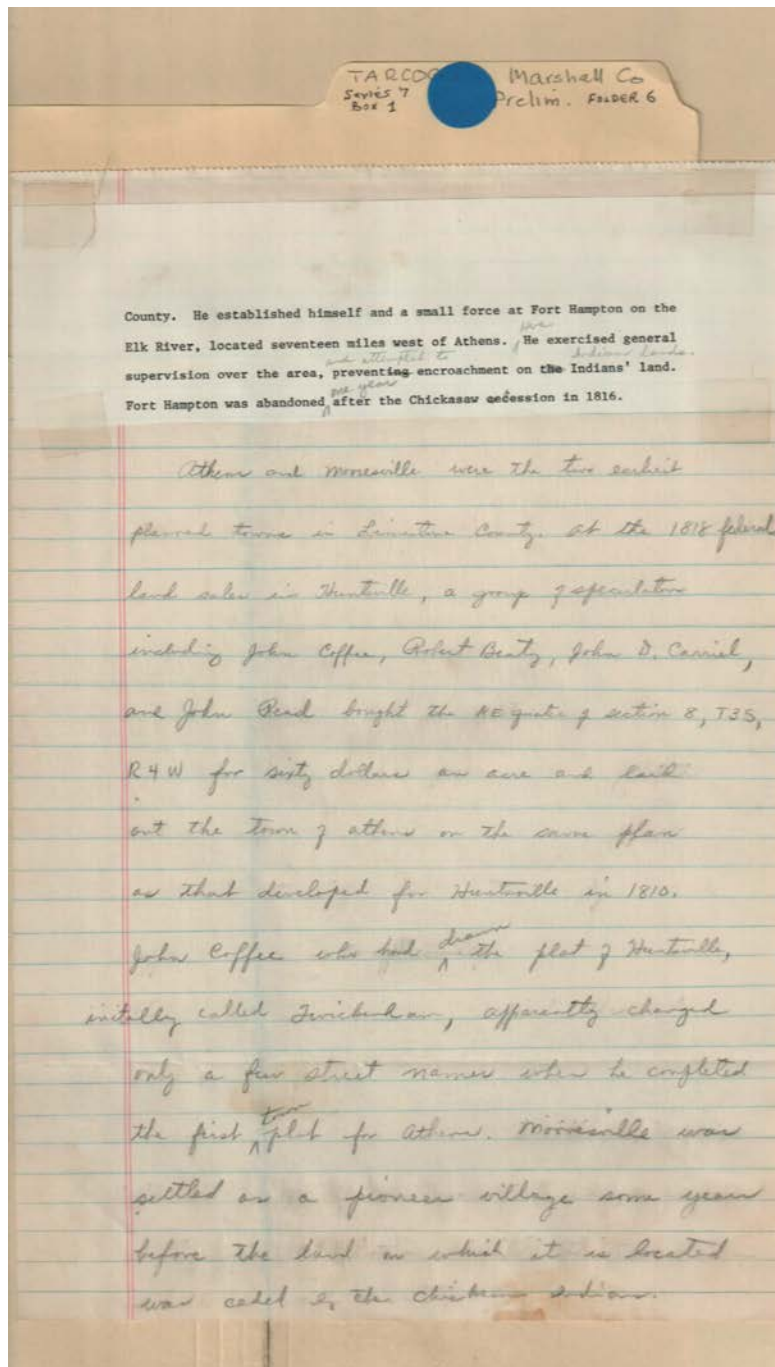 TARCOG Marshall Co
Series 7 Prelim. FOLDER 6
Box 1
County. He established himself and a small force at Fort Hampton on the
here
Elk River, located seventeen miles west of Athens. He exercised general
and attempted to Indian lands.
supervision over the area, preventing encroachment on the Indians' land.
one year
Fort Hampton was abandoned after the Chickasaw cession in 1816.
Athens and Mooresville were the two earliest
planned towns in Limestone County. At the 1818 federal
land sales in Huntsville, a group of speculators
including John Coffee, Robert Beaty, John D. Carriel,
and John Read bought the NE quarter of section 8, T3S,
R4W for sixty dollars an acre and laid
out the town of Athens on the same plan
as that developed for Huntsville in 1810.
drawn
John Coffee who had the plat of Huntsville,
initally called Twickenham, apparently changed
only a few street names when he completed
town
the first plat for Athens. Mooresville was
settled as a pioneer village some years
before the land on which it is located
was ceded by the Chickasaw Indians.